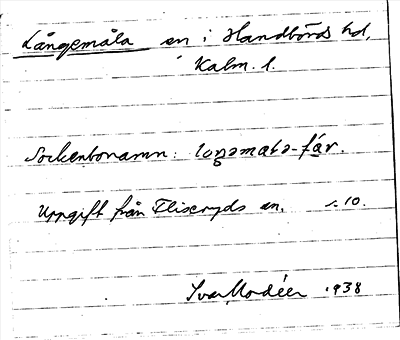 Långemåla sn i Handbörds hd,
Kalm. l.
Sockenbonamn: loŋəmaLə-får.
Uppgift från Fliseryds sn. s. 10.
Ivar Modéer 1938